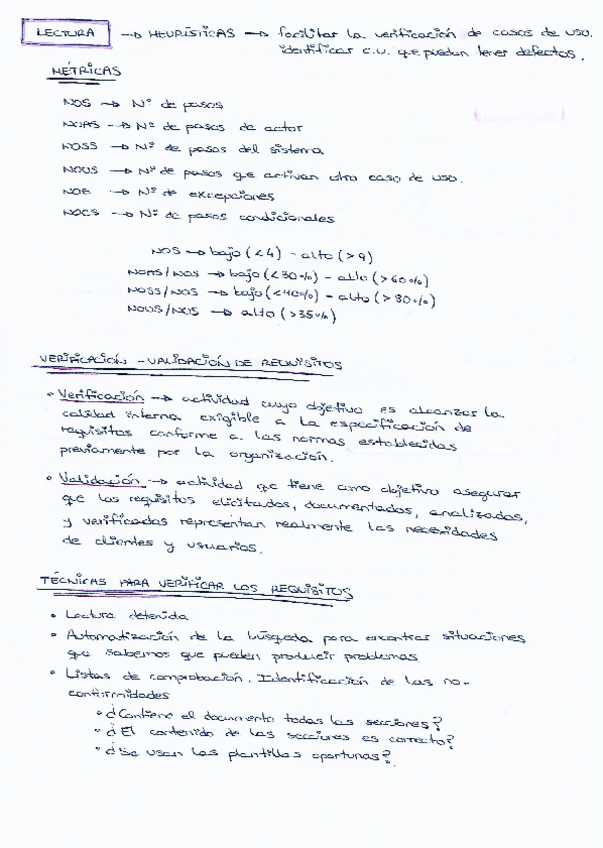 LECTURA → HEURÍSTICAS → facilitar la verificación de casos de uso.
identificar c.u. que puedan tener defectos.
MÉTRICAS
NOS → Nº de pasos
NOAS → Nº de pasos de actor
NOSS → Nº de pasos del sistema
NOUS → Nº de pasos que activan otro caso de uso.
NOE → Nº de excepciones
NOCS → Nº de pasos condicionales
NOS → bajo (<4) - alto (>9)
NOAS/NOS → bajo (<30%) - alto (>60%)
NOSS/NOS → bajo (<40%) - alto (>80%)
NOUS/NOS → alto (>35%)
VERIFICACIÓN - VALIDACIÓN DE REQUISITOS
• Verificación → actividad cuyo objetivo es alcanzar la
calidad interna exigible a la especificación de
requisitos conforme a las normas establecidas
previamente por la organización.
• Validación → actividad que tiene como objetivo asegurar
que los requisitos elicitados, documentados, analizados,
y verificados representan realmente las necesidades
de clientes y usuarios.
TÉCNICAS PARA VERIFICAR LOS REQUISITOS
• Lectura detenida
• Automatización de la búsqueda para encontrar situaciones
que sabemos que pueden producir problemas
• Listas de comprobación. Identificación de las no-
confirmidades
• ¿Contiene el documento todas las secciones?
• ¿El contenido de las secciones es correcto?
• ¿Se usan las plantillas oportunas?